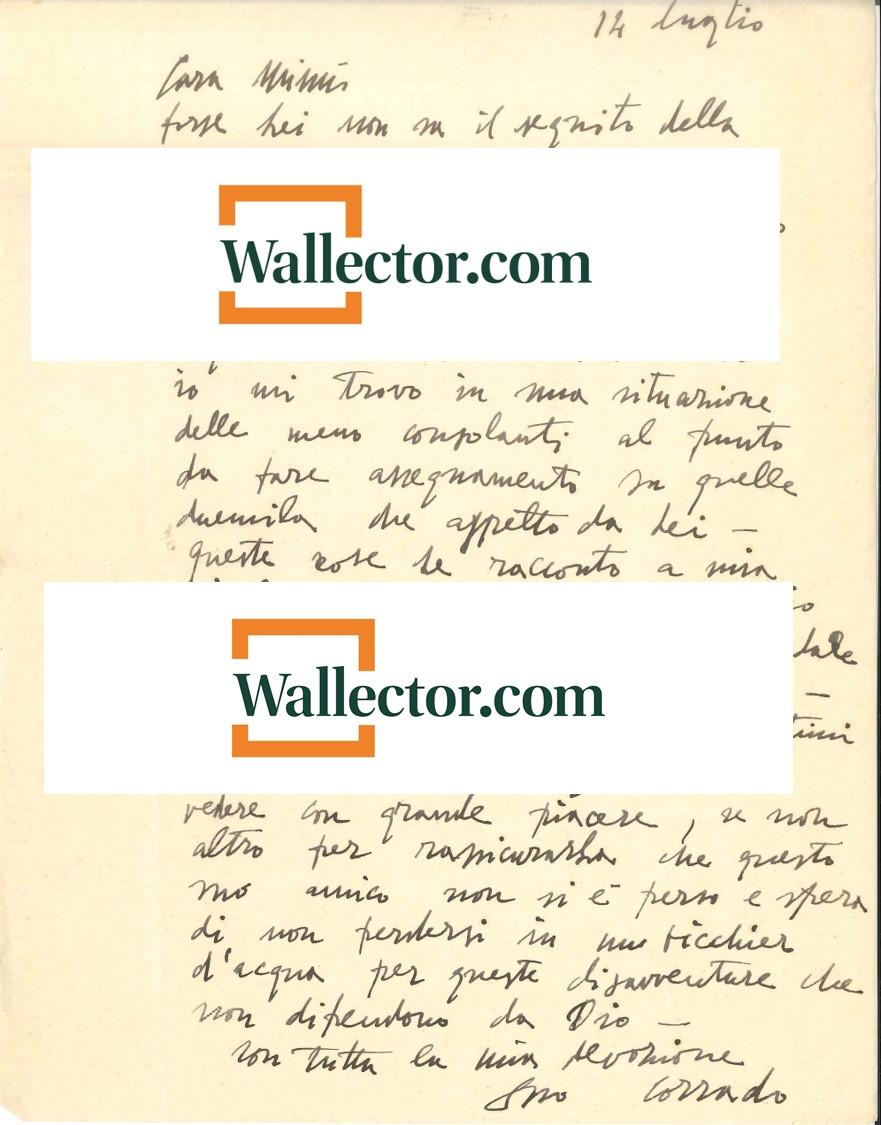 14 luglio
Cara Mimì
forse Lei non sa il seguito della
Wallector.com
io mi trovo in una situazione
delle meno consolanti al punto
da fare assegnamento su quelle
duemila che aspetto da Lei —
queste cose le racconto a mia
Wallector.com
vedere con grande piacere, se non
altro per rassicurarla che questo
suo amico non si è perso e spera
di non perdersi in un bicchier
d'acqua per queste disavventure che
non dipendono da Dio —
con tutta la mia devozione
Suo Corrado